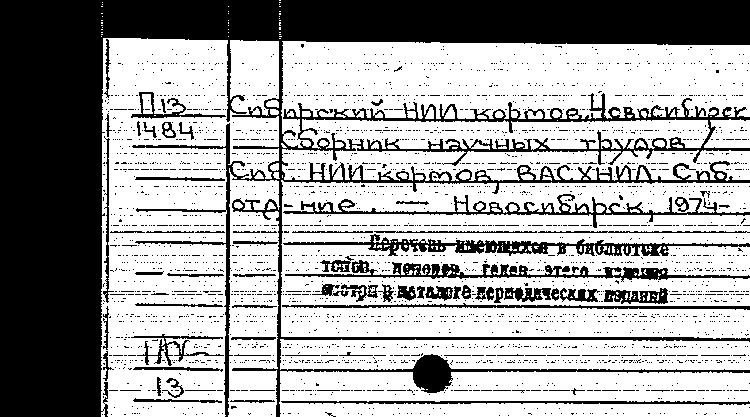 П13
1484
Сибирский НИИ кормов, Новосибирск
Сборник научных трудов /
Сиб. НИИ кормов, ВАСХНИЛ. Сиб.
отд-ние. — Новосибирск, 1974-
Перечень имеющихся в библиотеке
томов, номеров, годов этого издания
смотри в каталоге периодических изданий
13